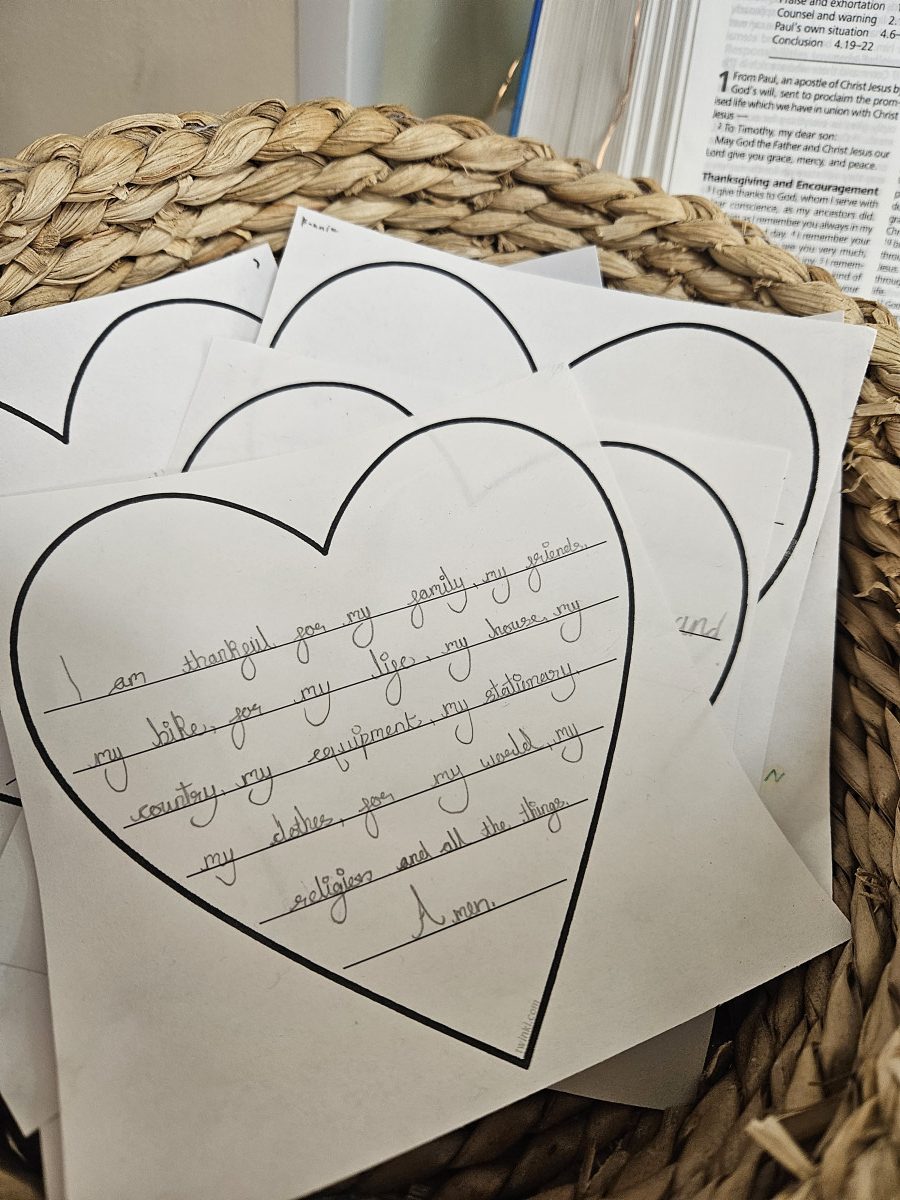 Praise and exhortation
Counsel and warning 2.
Paul's own situation 4.6–
Conclusion 4.19–22
1 From Paul, an apostle of Christ Jesus by
God's will, sent to proclaim the prom-
ised life which we have in union with Christ
Jesus —
2 To Timothy, my dear son:
May God the Father and Christ Jesus our
Lord give you grace, mercy, and peace.
Thanksgiving and Encouragement
3 I give thanks to God, whom I serve with
conscience, as my ancestors did.
as I remember you always in my
day. 4 I remember your
you very much,
I remem-
kind of
your
I am thankful for my family, my friends,
my bike, for my life, my house, my
country, my equipment, my stationary,
my clothes, for my world, my
religion and all the things.
Amen.
and
N
twinkl.com